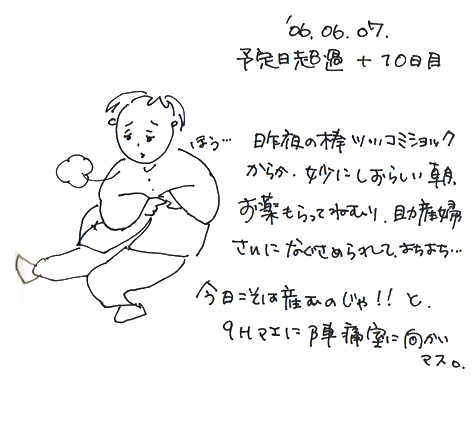 '06.06.07.
予定日超過 + 10日目
ほう… 昨夜の棒ツッコミショック
からか、妙にしおらしい朝、
お薬もらってねむり、助産婦
さんになぐさめられて、よちよち…
今日こそは産むのじゃ!!と、
9Hマエに陣痛室に向かい
マス。